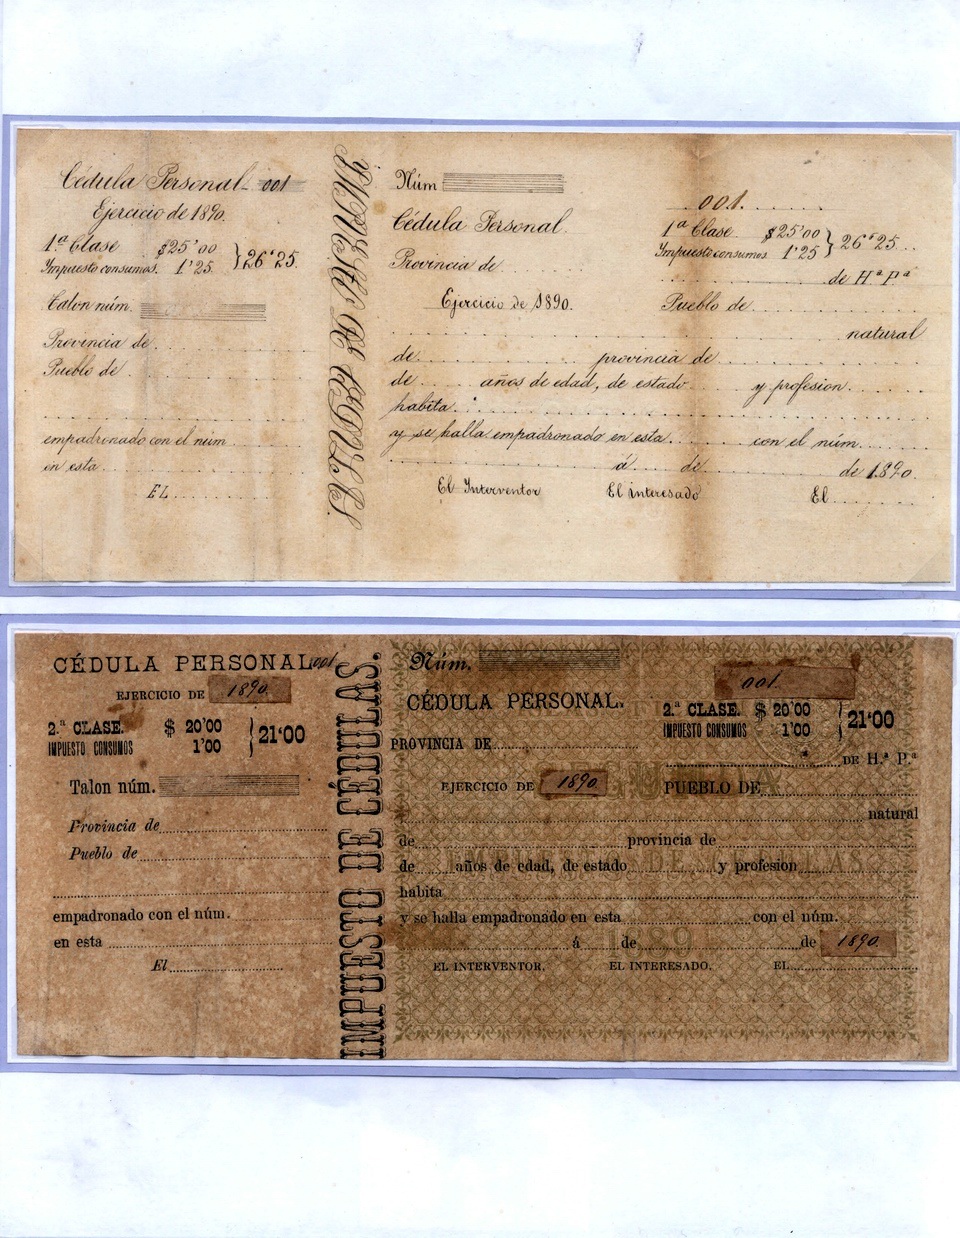 Cédula Personal 001
Ejercicio de 1890.
1ª Clase $25'00 } 26'25.
Impuesto consumos. 1'25
Talon núm.
Provincia de
Pueblo de
empadronado con el núm
en esta
EL
Núm
001.
Cédula Personal.
1ª Clase $25'00 } 26'25
Impuesto consumos 1'25
Provincia de
de Hª Pª
Ejercicio de 1890.
Pueblo de
natural
de provincia de
de años de edad, de estado y profesion
habita.
y se halla empadronado en esta con el núm.
á de de 1890.
El Interventor El interesado El
CÉDULA PERSONAL 001
EJERCICIO DE 1890.
2.ª CLASE. $ 20'00 } 21'00
IMPUESTO CONSUMOS 1'00
Talon núm.
Provincia de
Pueblo de
empadronado con el núm.
en esta
El
IMPUESTO DE CÉDULAS.
Núm.
001.
CÉDULA PERSONAL.
2.ª CLASE. $ 20'00 } 21'00
IMPUESTO CONSUMOS 1'00
PROVINCIA DE
DE H.ª P.ª
EJERCICIO DE 1890.
PUEBLO DE
natural
de provincia de
de años de edad, de estado y profesion
habita
y se halla empadronado en esta con el núm.
á de de 1890.
EL INTERVENTOR. EL INTERESADO. EL